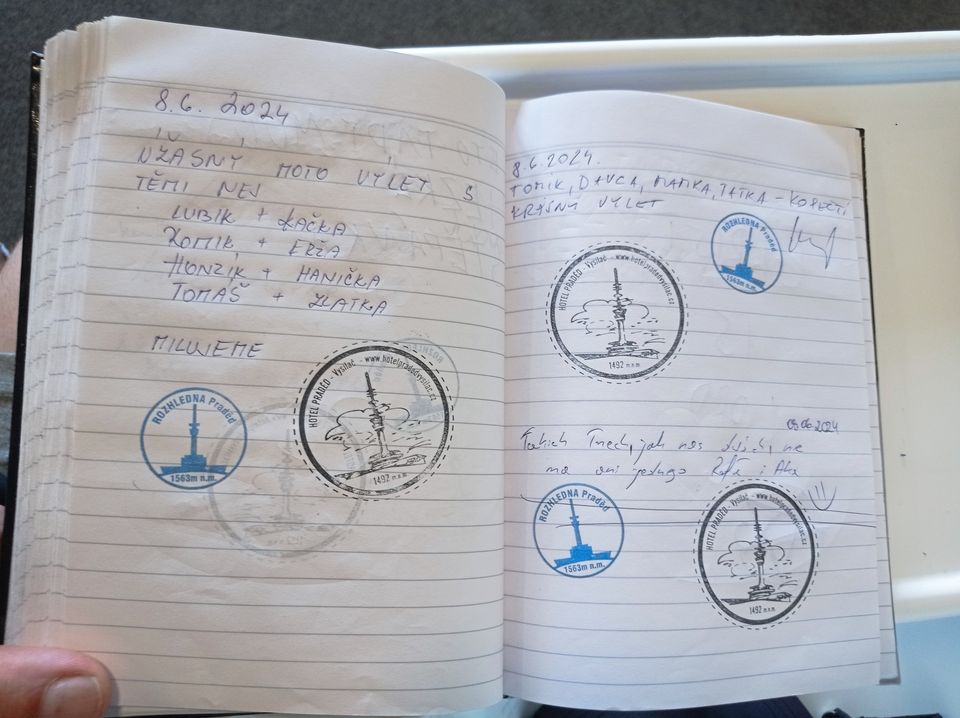 8.6. 2024
UŽASNÝ MOTO VÝLET S
TĚMI NEJ
LUBIK + KAČKA
ROMIK + ERŽA
HONZIK + HANIČKA
TOMAŠ + ZLATKA
MILUJEME
ROZHLEDNA Praděd
1563m n.m.
HOTEL PRADĚD - Vysílač - www.hotelpradedvysilac.cz
1492 m.n.m.
8.6.2024.
TOMIK, DAVCA, MAMKA, TATKA -
KRASNÝ VÝLET
ROZHLEDNA Praděd
1563m n.m.
HOTEL PRADĚD - Vysílač - www.hotelpradedvysilac.cz
1492 m.n.m.
08.06.2024
Takich Trzech, jak nas dwóch, ne
ma ani jednego i
ROZHLEDNA Praděd
1563m n.m.
HOTEL PRADĚD - Vysílač - www.hotelpradedvysilac.cz
1492 m.n.m.